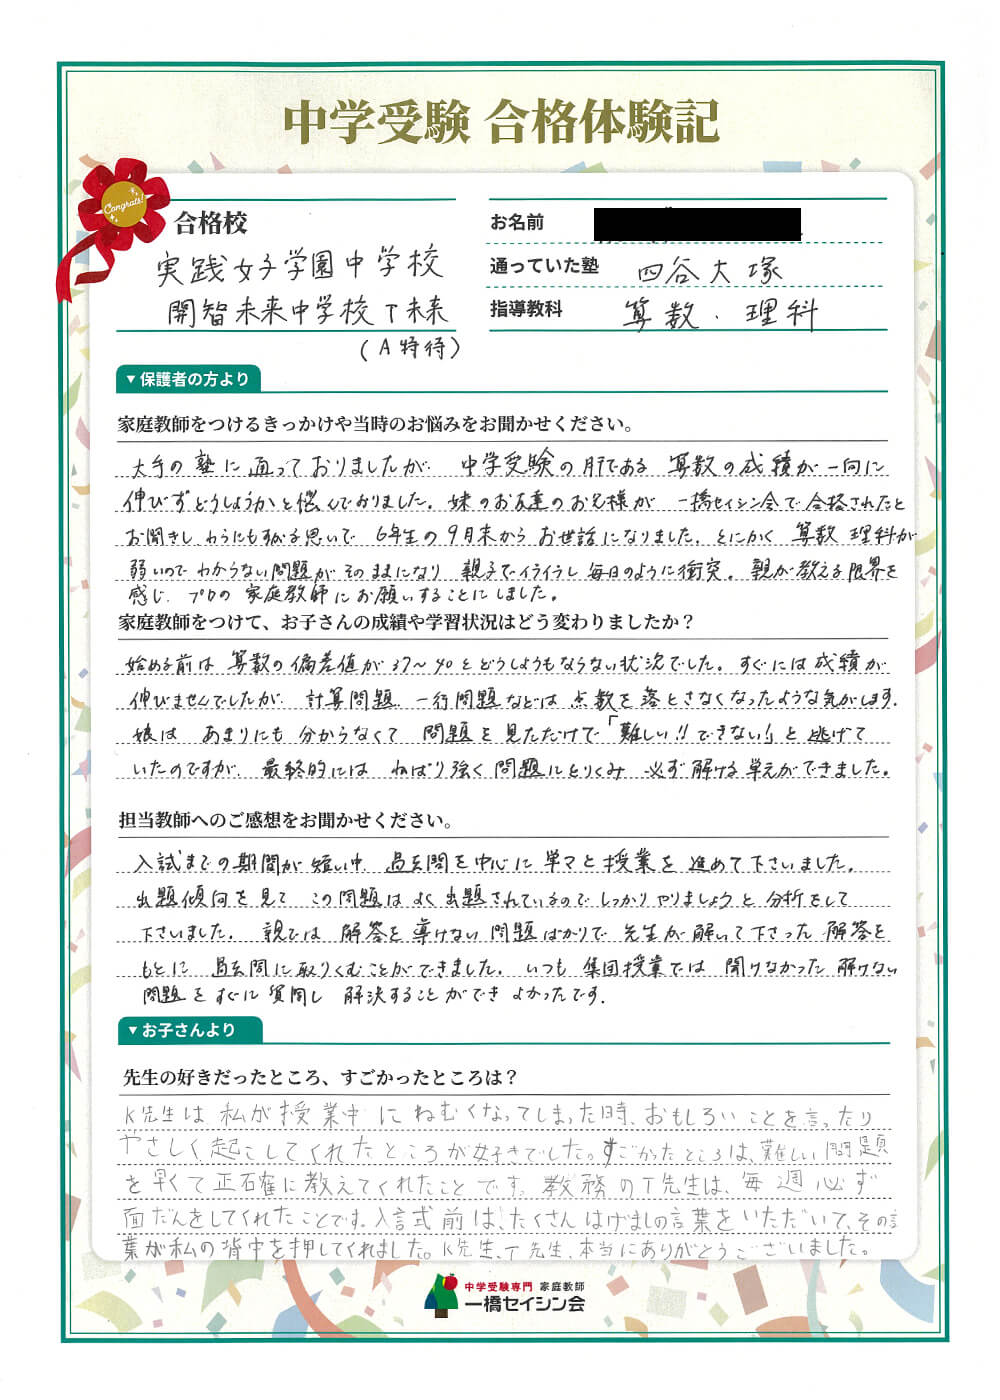 中学受験 合格体験記
Congrats!
合格校
実践女子学園中学校
開智未来中学校 T未来
(A特待)
お名前
通っていた塾 四谷大塚
指導教科 算数・理科
▼保護者の方より
家庭教師をつけるきっかけや当時のお悩みをお聞かせください。
大手の塾に通っておりましたが、中学受験の肝である 算数の成績が一向に
伸びずどうしようかと悩んでおりました。妹のお友達のお兄様が 一橋セイシン会で合格されたと
お聞きし、わらにも
思いで 6年生の9月末から お世話になりました。とにかく 算数 理科が
弱いので わからない問題が そのままになり 親子でイライラし 毎日のように衝突。親が教える限界を
感じ、プロの 家庭教師にお願いすることにしました。
家庭教師をつけて、お子さんの成績や学習状況はどう変わりましたか？
始める前は 算数の偏差値が 37〜40 とどうしようもならない状況でした。すぐには成績が
伸びませんでしたが、計算問題、一行問題などは 点数を落とさなくなったような気がします。
娘は あまりにも 分からなくて 問題を見ただけで「難しい!!できない!」と逃げて
いたのですが、最終的には ねばり強く問題にとりくみ 必ず解ける単元ができました。
担当教師へのご感想をお聞かせください。
入試までの期間が短い中、過去問を中心に 単マと授業を進めて下さいました。
出題傾向を見て この問題はよく出題されているので しっかりやりましょうと 分析をして
下さいました。親では 解答を導けない問題ばかりで 先生が解いて下さった解答を
もとに 過去問に取りくむことができました。いつも 集団授業では 聞けなかった 解けない
問題をすぐに質問し 解決することができ よかったです。
▼お子さんより
先生の好きだったところ、すごかったところは？
K先生は 私が授業中に ねむくなってしまった時、おもしろいことを言ったり
やさしく起こしてくれたところが好きでした。すごかったところは、難しい問題
を早くて正確に教えてくれたことです。教務のT先生は、毎週必ず
面だんをしてくれたことです。入試前は、たくさんはげましの言葉をいただいて、その言
葉が私の背中を押してくれました。K先生、T先生、本当にありがとうございました。
中学受験専門 家庭教師
一橋セイシン会